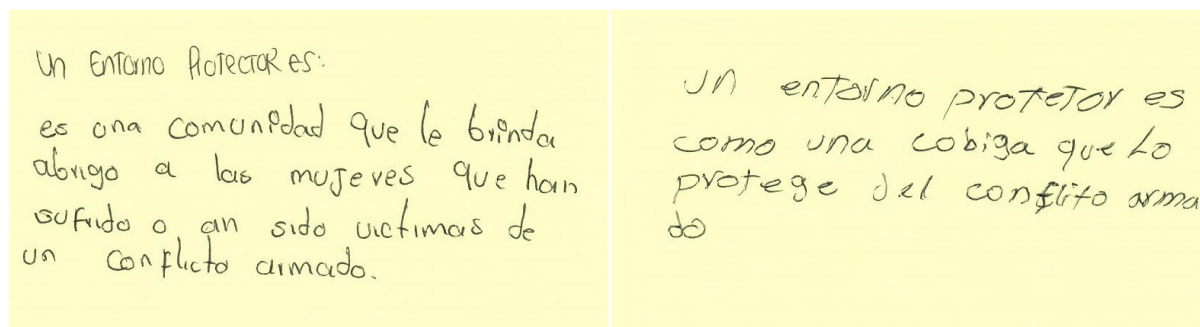 Un Entorno Protector es:
es una comunidad que le brinda
abrigo a las mujeres que han
sufrido o an sido victimas de
un conflicto armado.
un entorno protetor es
como una cobiga que Lo
protege del conflito arma
do